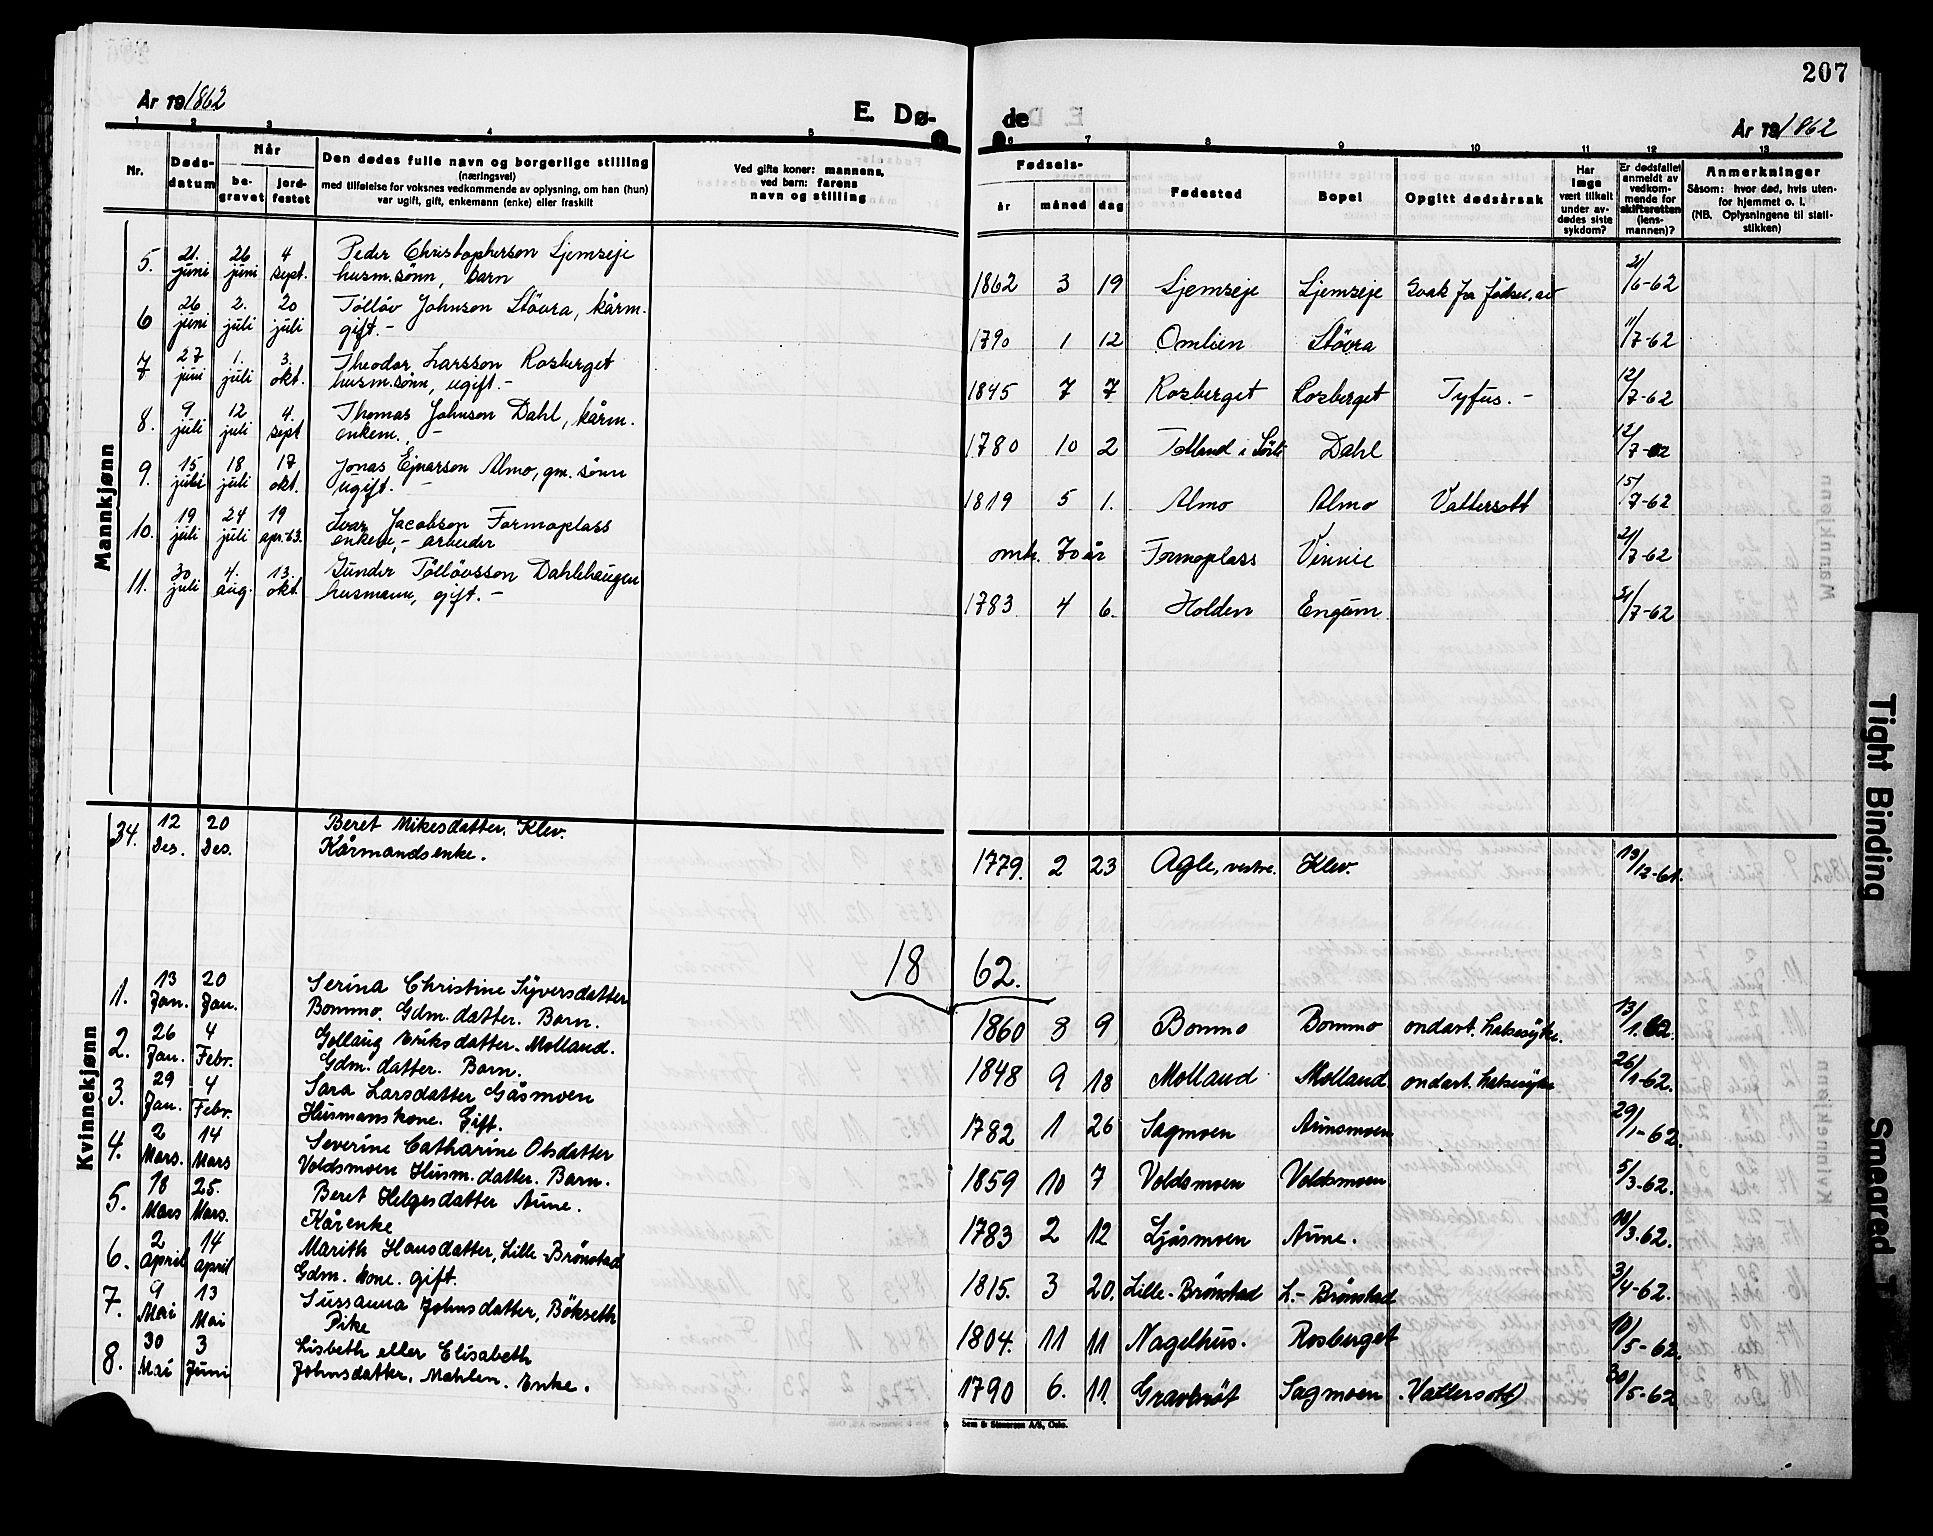 207
År 19 1862
E. Dø-
de
År 19 1862
1 2 3 4 5 6 7 8 9 10 11 12 13
Nr.
Døds-
datum
Når
be-
gravet
jord-
festet
Den dødes fulle navn og borgerlige stilling
(næringsvei)
med tilføielse for voksnes vedkommende av oplysning, om han (hun)
var ugift, gift, enkemann (enke) eller fraskilt
Ved gifte koner: mannens,
ved barn: farens
navn og stilling
Fødsels-
år måned dag
Fødested
Bopel
Opgitt dødsårsak
Har
læge
vært tilkalt
under av-
dødes siste
sykdom?
Er dødsfallet
anmeldt av
vedkom-
mende for
skifteretten
(lens-
mannen)?
Anmerkninger
Såsom: hvor død, hvis uten-
for hjemmet o. l.
(NB. Oplysningene til stati-
stikken)
Mannkjønn
5. 21. juni 26 juni 4 sept. Peder Christopherson Ljemseje
husm.sønn, barn
1862 3 19 Ljemseje Ljemseje Svak fra fødsel av 21/6-62
6 26 juni 2. juli 20 juli Tølløv Johnson Støvra, kårm.
gift. -
1790 1 12 Omlien Støvra 11/7-62
7 27 juni 1. juli 3. okt. Theodor Larsson Rosberget
husm.sønn, ugift. -
1845 7 7 Rosberget Rosberget Tyfus. - 12/7-62
8. 9 juli 12 juli 4. sept Thomas Johnson Dahl, kårm.
enkem. -
1780 10 2 Tolland i Sørli Dahl 12/7-62
9. 15 juli 18 juli 17 okt. Jonas Ejnarson Almo, gm. sønn
ugift. -
1819 5 1. Almo Almo Vattersott 15/7-62
10. 19 juli 24 juli 19 apr. 63. Ivar Jacobson Formoplass
enkem, - arbeider
omtr. 70 år Formoplass Vinnie 21/7-62
11. 30 juli 4. aug. 13. okt. Gunder Tølløvsson Dahlehaugen
husmann, gift. -
1783 4 6. Holden Engum 31/7-62
Kvinnekjønn
34. 12 Des. 20 Des. Beret Mikesdatter, Klev.
Kårmandsenke.
1779. 2 23 Agle, vestre. Klev. 19/12-61.
1862.
1. 13 Jan. 20 Jan. Serina Christine Syversdatter
Bommo. Gdm. datter. Barn.
1860 8 9 Bommo Bommo ondart. halssyke. 13/1. 62.
2. 26 Jan. 4 Febr. Gollaug Eriksdatter. Molland.
Gdm. datter. Barn.
1848 9 18 Molland Molland. ondart. halssyke 26/1-62.
3. 29 Jan. 4 Febr. Sara Larsdatter Gåsmoen
Husmanskone. Gift.
1782 1 26 Sagmoen Aunsmoen 29/1-62.
4. 2 Mars. 14 Mars Severine Catharine Olsdatter
Voldsmoen Husm. datter. Barn.
1859 10 7 Voldsmoen Voldsmoen 5/3-62.
5. 18 Mars 25. Mars. Beret Helgesdatter Aune.
Kårenke
1783 2 12 Ljåsmoen Aune. 19/3-62.
6. 2 April 14 April Marith Hansdatter, Lille-Brønstad
Gdm. kone. gift.
1815. 3 20. Lille-Brønstad L.-Brønstad 3/4-62.
7. 9 Mai 13 Mai Sussanna Johnsdatter, Bøkseth
Pike
1804. 11 11 Nagelhus. Rosberget 10/5-62.
8. 30 Mai 3 Juni Lisbeth eller Elisabeth
Johnsdatter. Mahlen. Enke.
1790 6. 11. Gravbrøt Sagmoen Vattersott 30/5-62
Sem & Stenersen A/S, Oslo.
Tight Binding
Smeared T